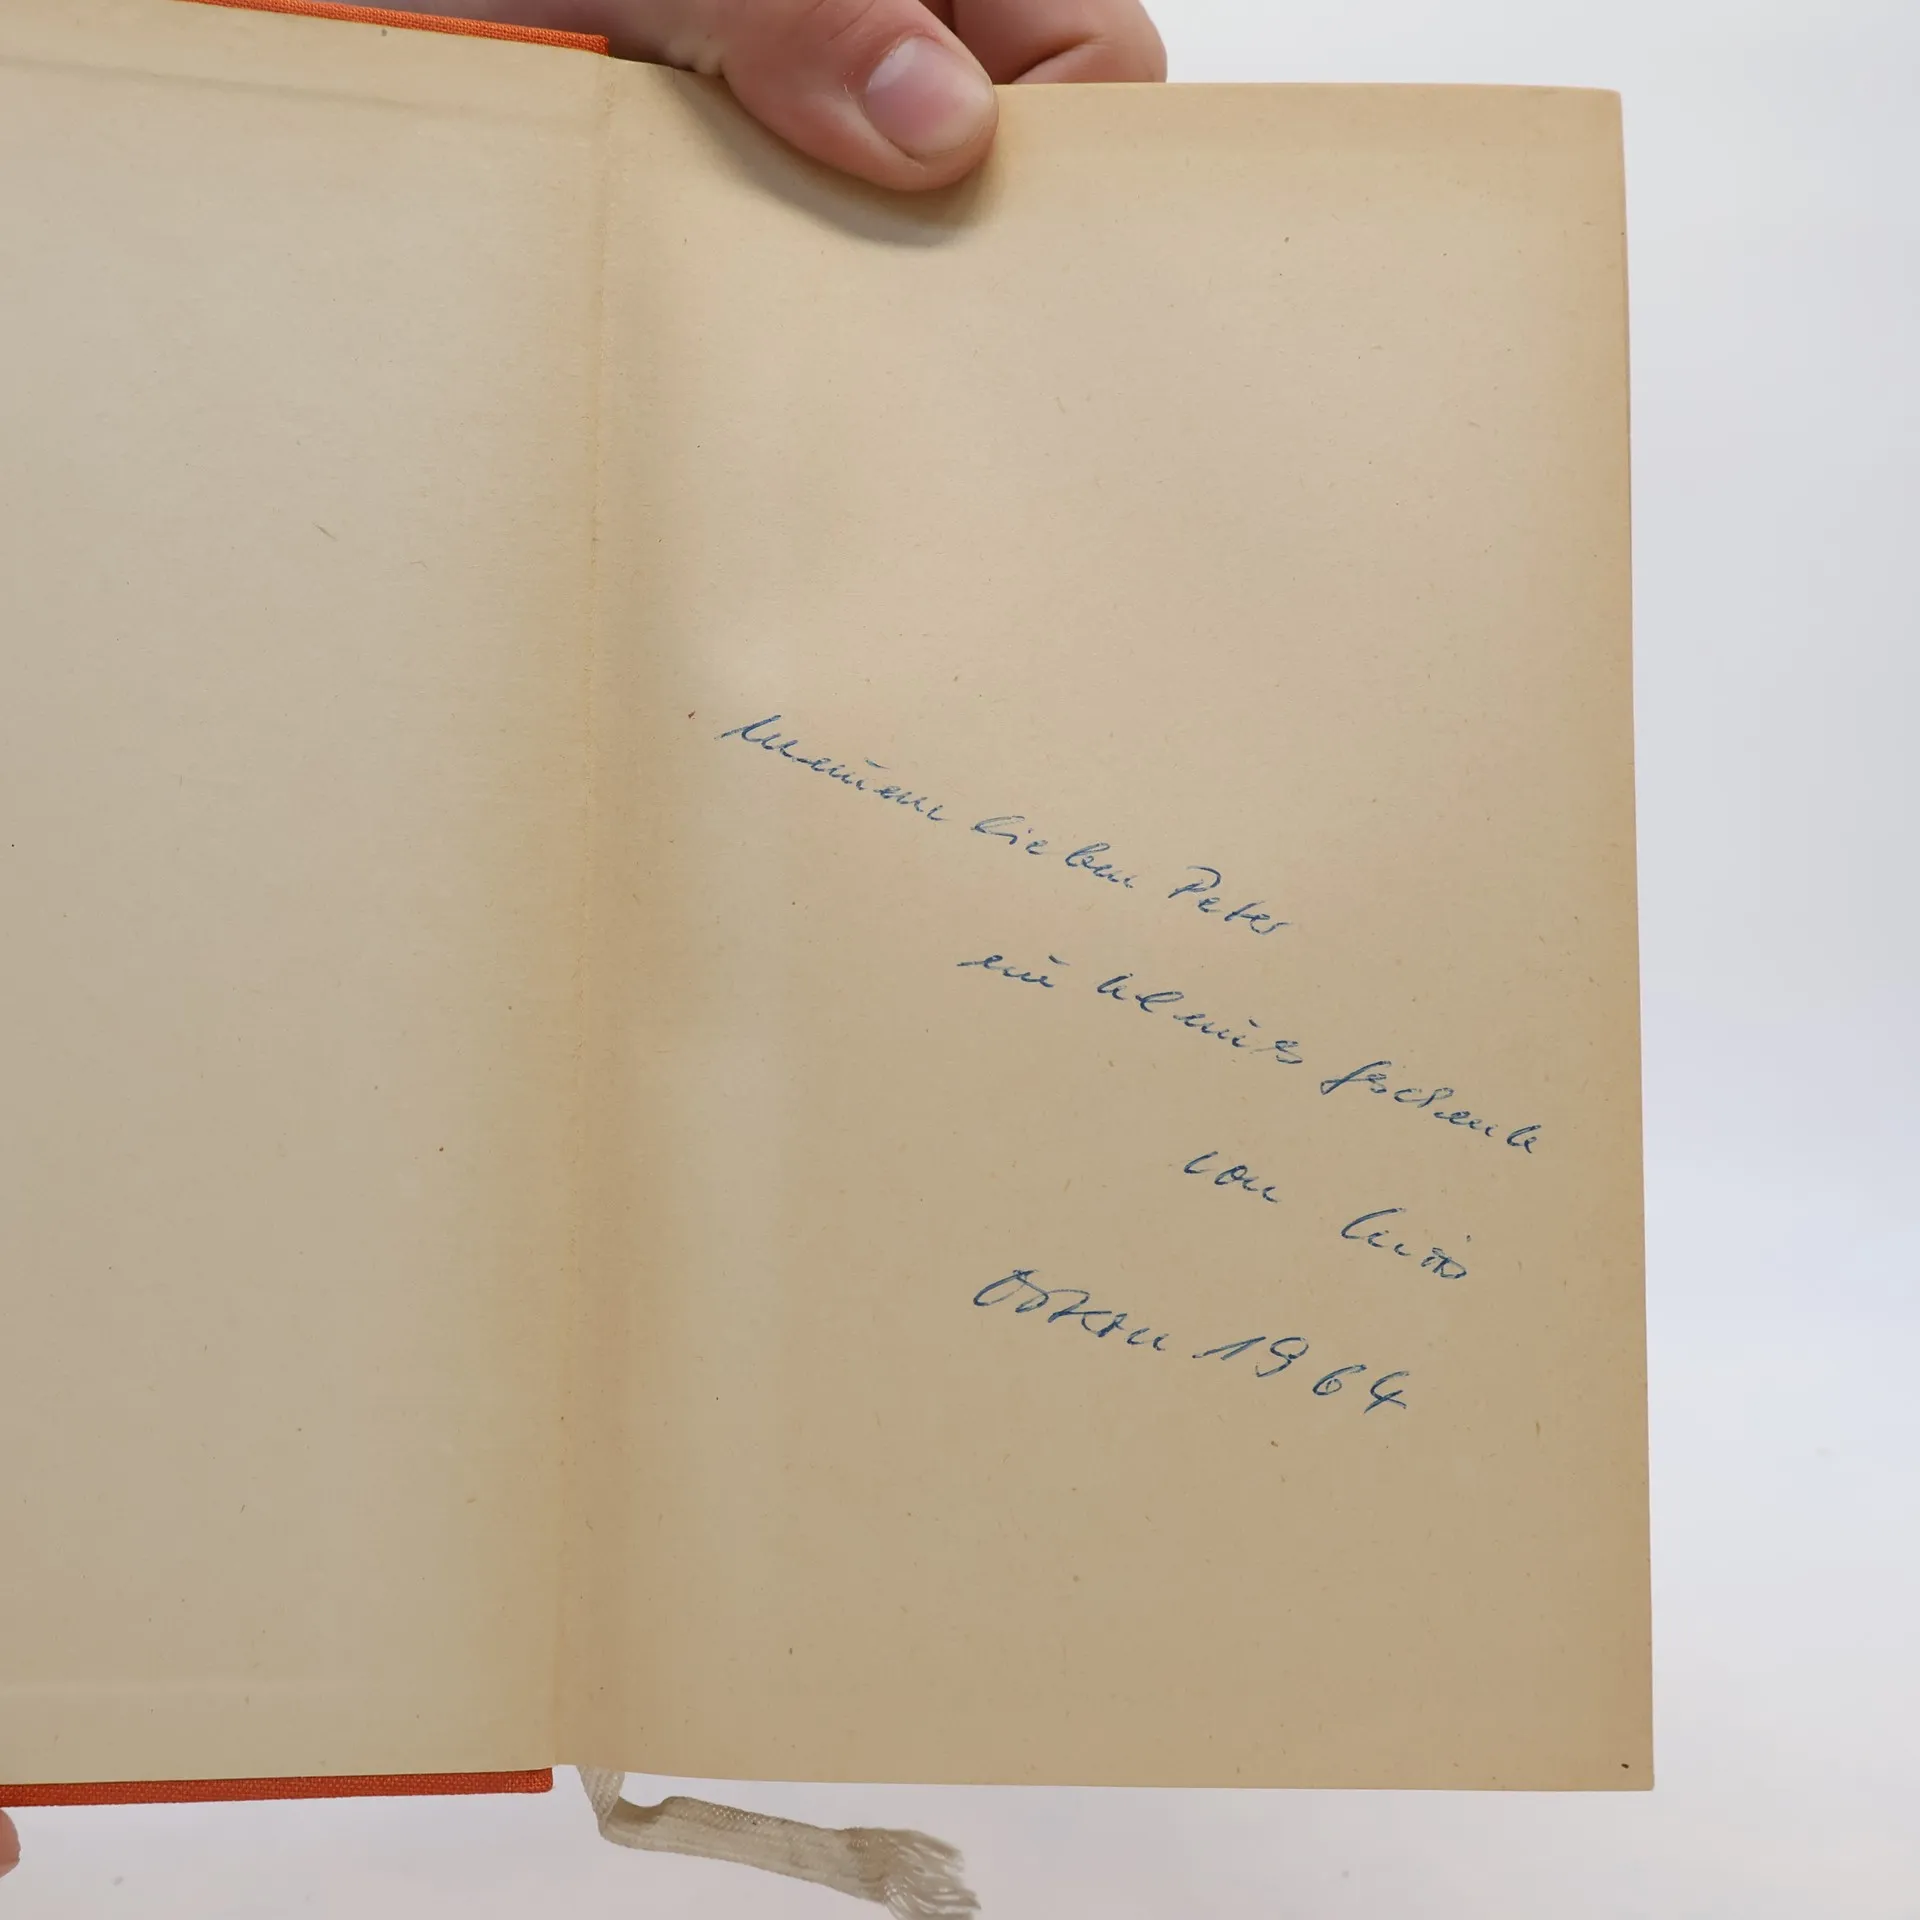 Meinem lieben Peter
ein kleines Geschenk
von
1964